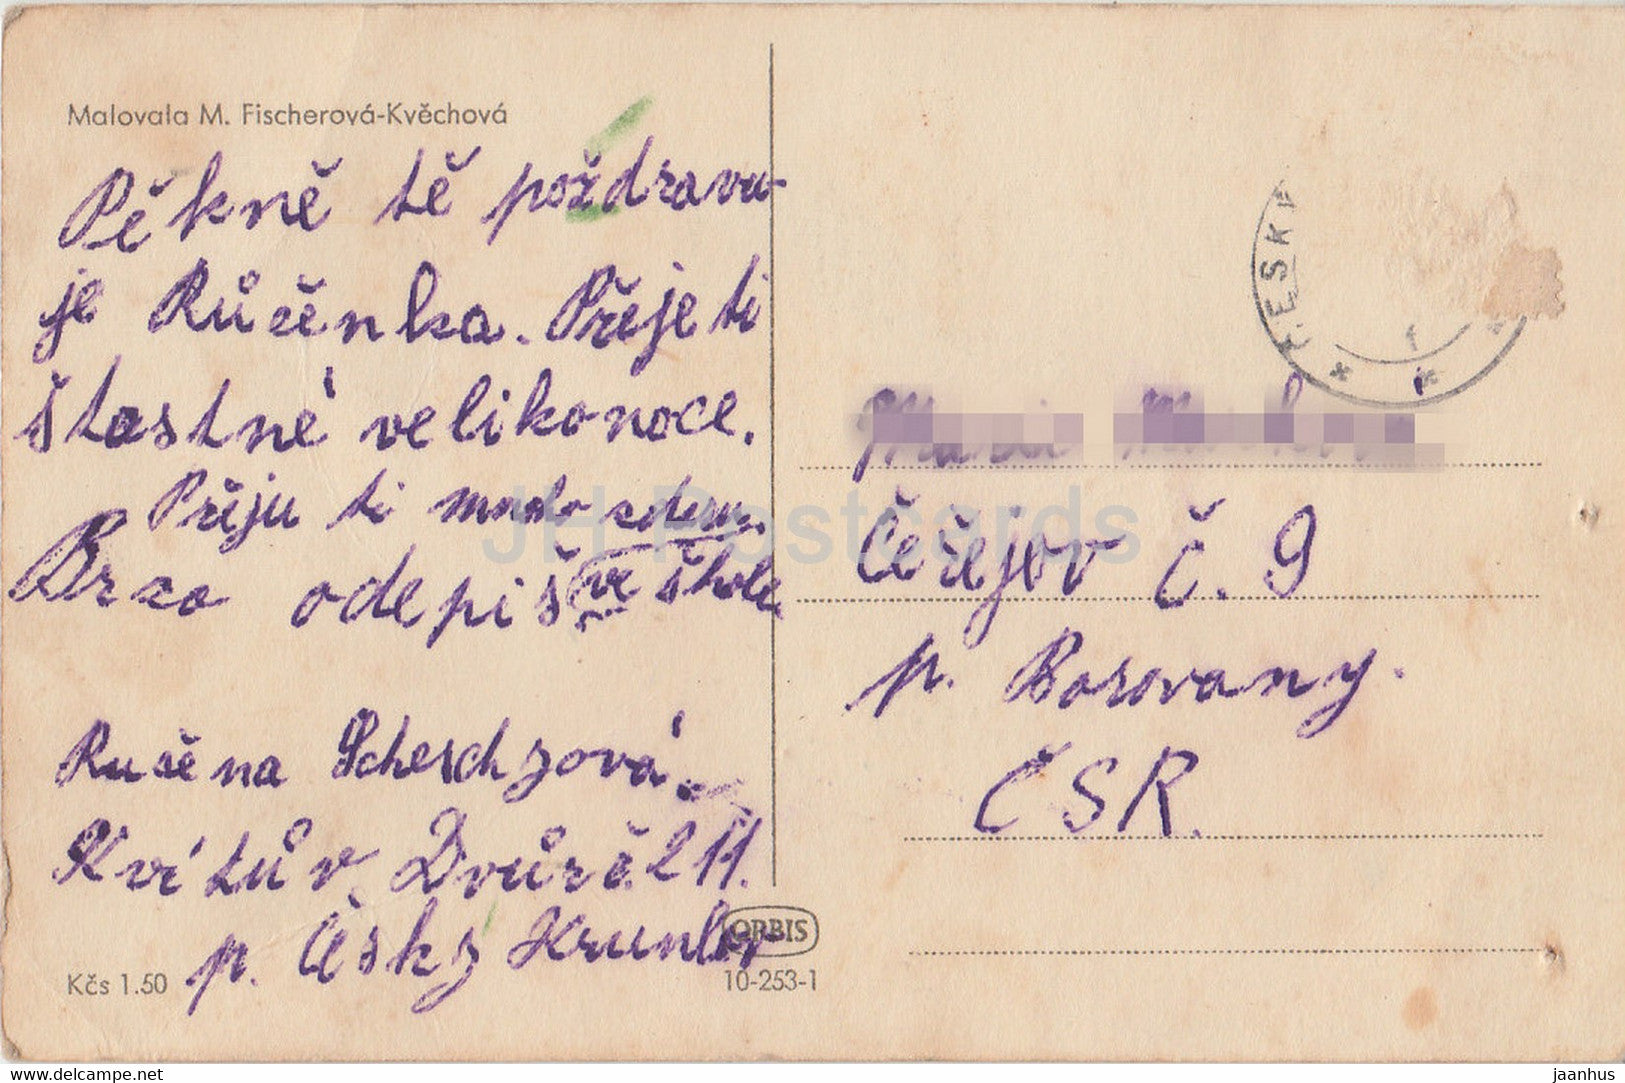 Malovala M. Fischerová-Kvěchová
Pěkně tě poždravu-
je Růženka. Přeje ti
štastné velikonoce.
Přeju ti mnoho zdaru
Brzo odepiš ve škole.
Ružena
Kvítův Dvůr č. 11.
p. Český Krumlov
Kčs 1.50
ORBIS
10-253-1
ČESK
Čeřejov č. 9
p. Borovany.
ČSR.
JH Postcards
delcampe.net
jaanhus